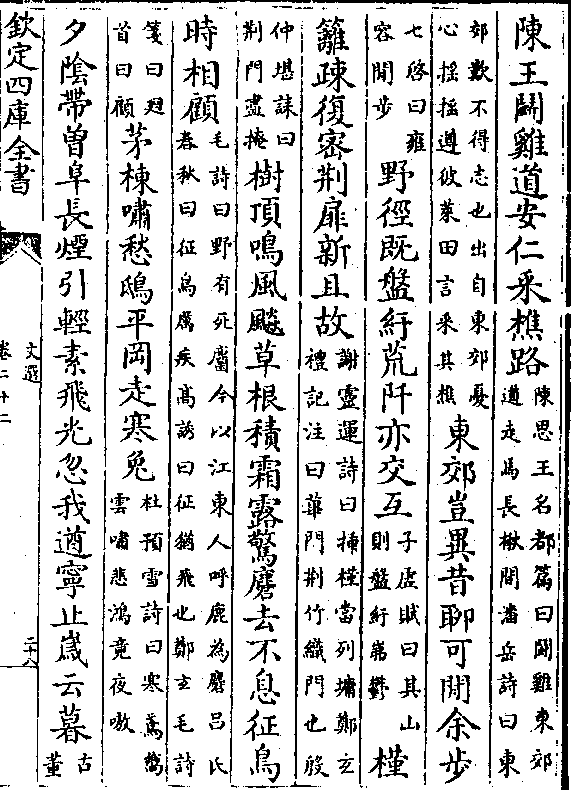 陳王鬬雞道安仁采樵路陳思王名都篇曰鬬雞東郊道走馬長楸間潘岳詩曰東
郊歎不得志也出自東郊憂心揺揺遵彼萊田言采其樵東郊豈異昔聊可閒余步
七啓曰雍容閒步野徑既盤紆荒阡亦交互子虛賦曰其山則盤紆岪鬱槿
籬疎復密荆扉新且故謝靈運詩曰插槿當列墉鄭玄禮記注曰蓽門荆竹織門也殷
仲堪誄曰荆門盡掩樹頂鳴風飈草根積霜露驚麏去不息征鳥
時相顧毛詩曰野有死麕今以江東人呼鹿為麏吕氏春秋曰征鳥厲疾高誘曰征猶飛也鄭玄毛詩
箋曰廻首曰顧茅棟嘯愁鴟平岡走寒兔杜預雪詩曰寒雲嘯悲鴻竟夜嗷
夕陰帶曽阜長煙引輕素飛光忽我遒寧止嵗云暮古董
欽定四庫全書
文選
卷二十二
二十六